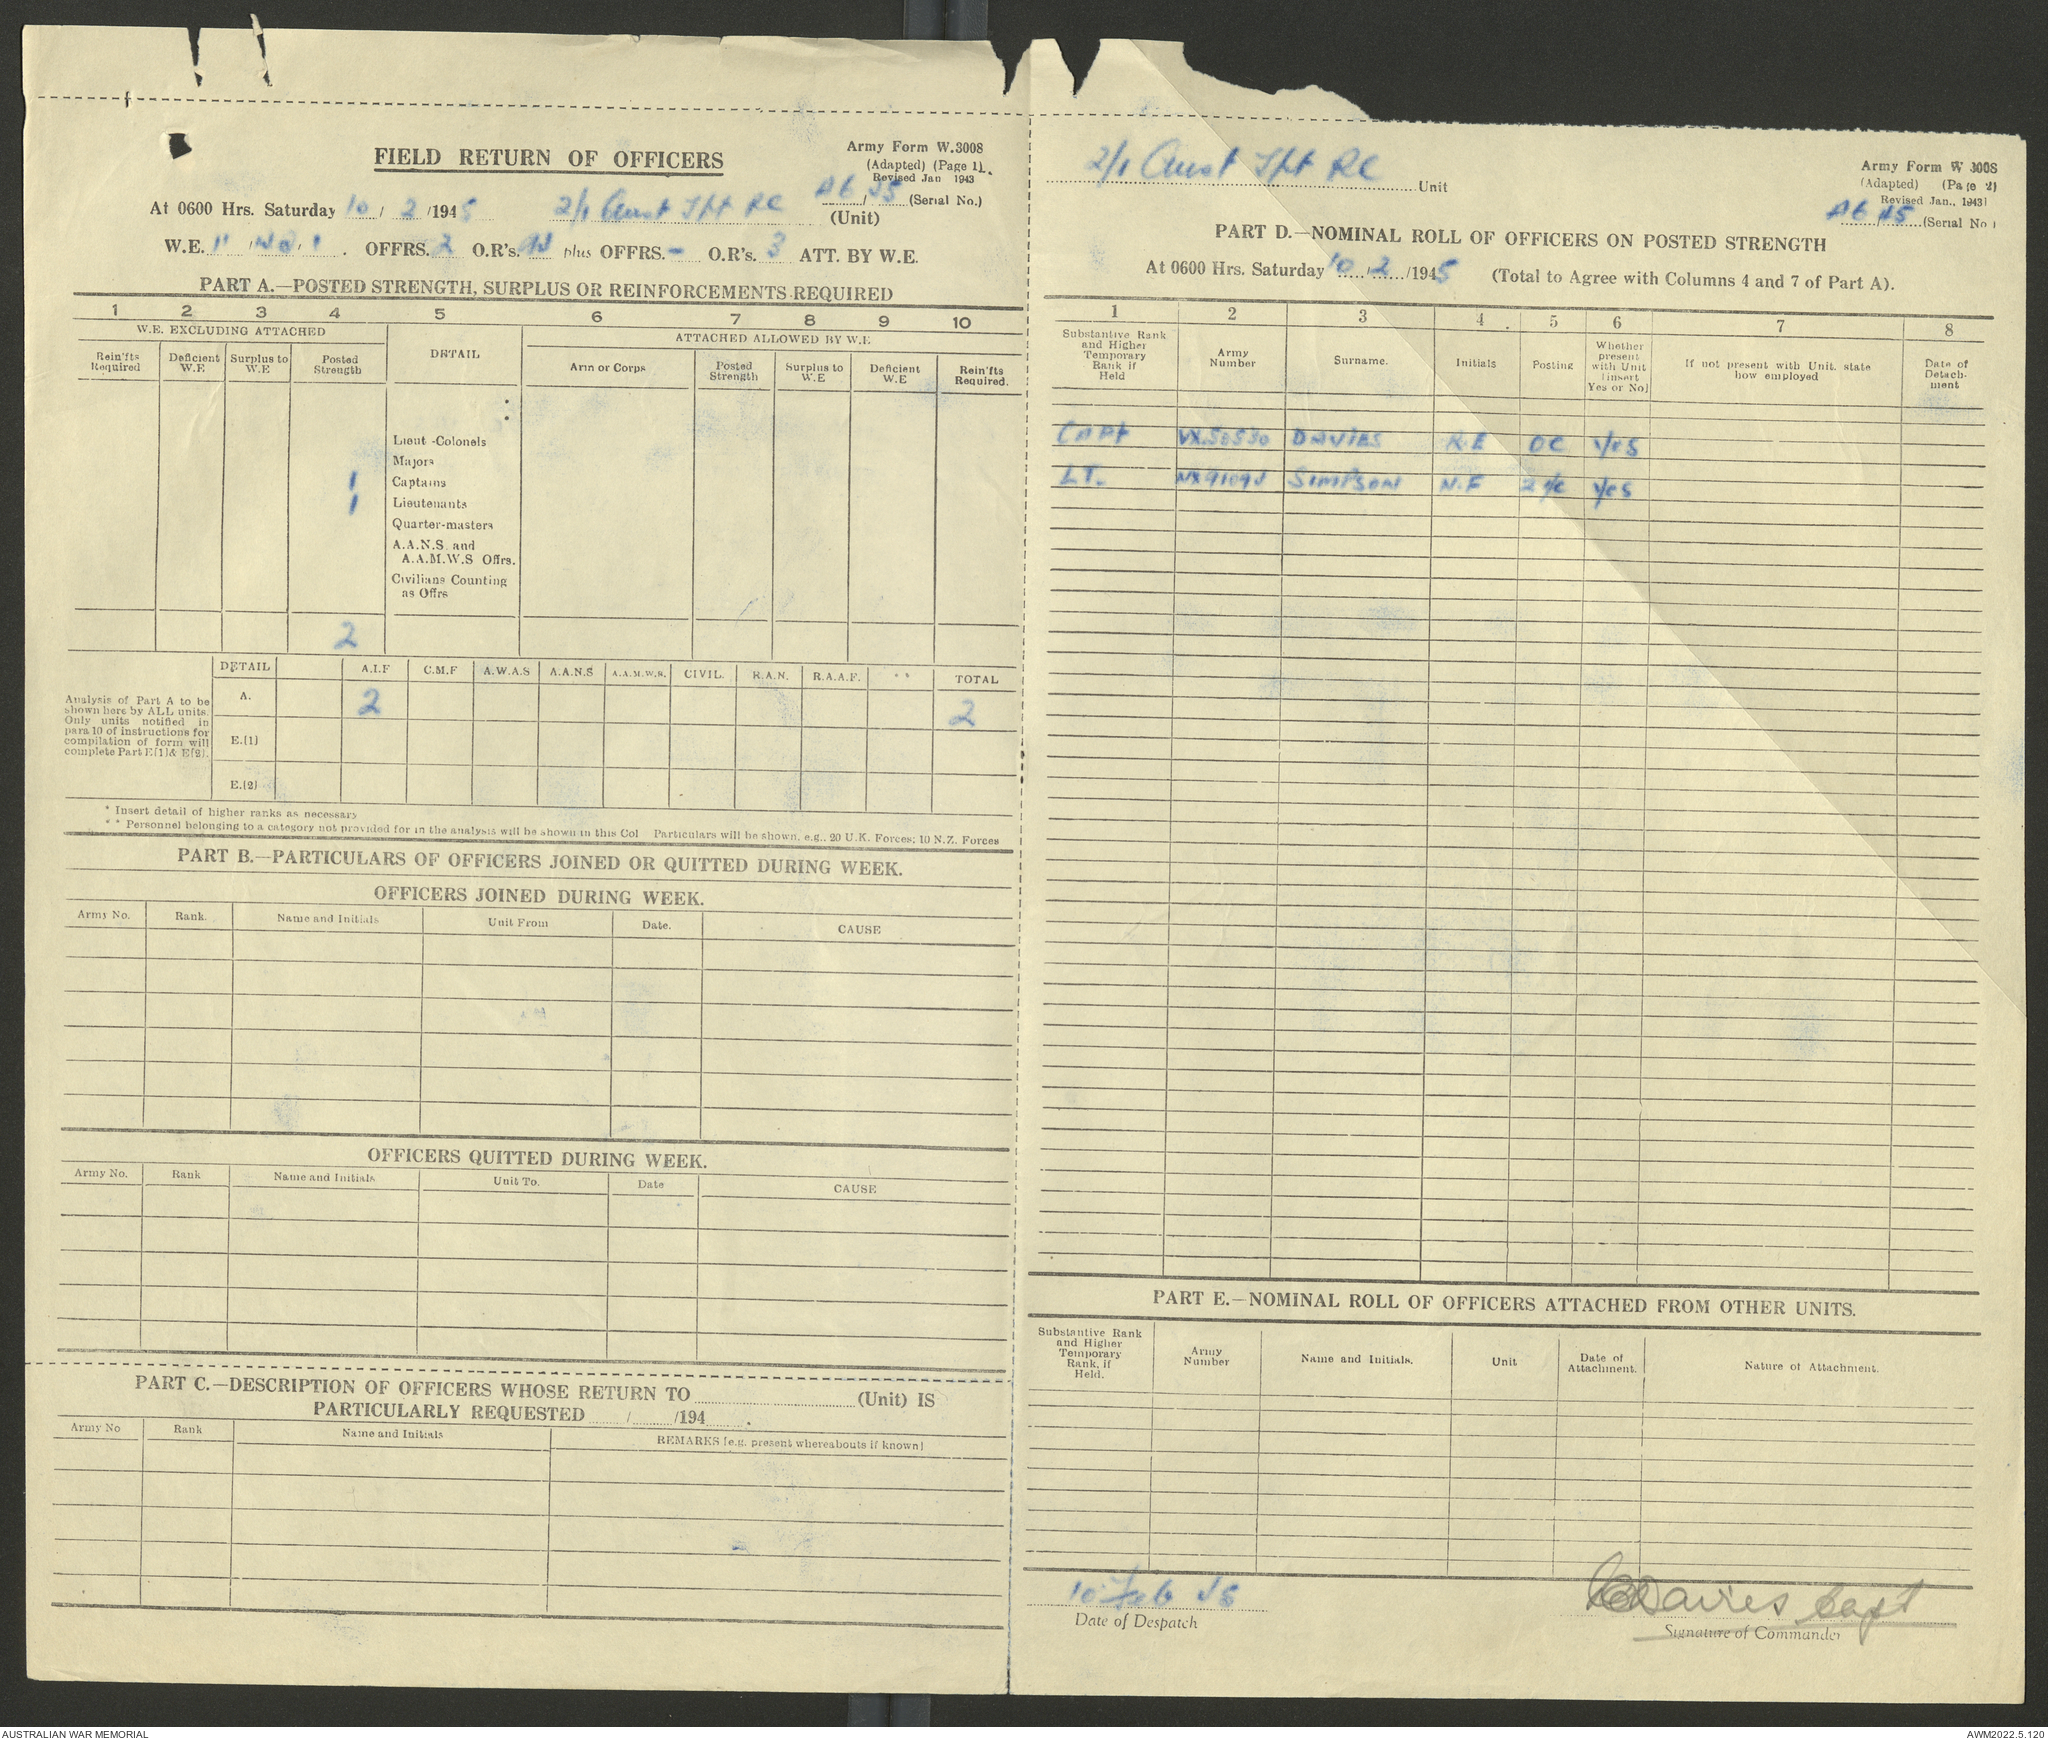 FIELD RETURN OF OFFICERS
Army Form W.3008
(Adapted) (Page 1).
Revised Jan 1943.
At 0600 Hrs. Saturday 10/2/1945 2/1 Aust Tpt RC A6/45 (Serial No.)
(Unit)
W.E. II/ / 1. OFFRS. 2 O.R's. plus OFFRS. - O.R's. 3 ATT. BY W.E.
PART A.—POSTED STRENGTH, SURPLUS OR REINFORCEMENTS REQUIRED
1 2 3 4 5 6 7 8 9 10
W.E. EXCLUDING ATTACHED DETAIL ATTACHED ALLOWED BY W.E
Rein'fts Required
Deficient W.E
Surplus to W.E
Posted Strength
Arm or Corps
Posted Strength
Surplus to W.E
Deficient W.E
Rein'fts Required.
Lieut-Colonels
Majors
1 Captains
1 Lieutenants
Quarter-masters
A.A.N.S. and
A.A.M.W.S Offrs.
Civilians Counting
as Offrs
2
DETAIL A.I.F C.M.F A.W.A.S A.A.N.S A.A.M.W.S. CIVIL. R.A.N. R.A.A.F. * * TOTAL
Analysis of Part A to be
shown here by ALL units.
Only units notified in
para 10 of instructions for
compilation of form will
complete Part E[1] & E[2].
A. 2 2
E.[1]
E.[2]
* Insert detail of higher ranks as necessary
* * Personnel belonging to a category not provided for in the analysis will be shown in this Col Particulars will be shown, e.g., 20 U.K. Forces; 10 N.Z. Forces
PART B.—PARTICULARS OF OFFICERS JOINED OR QUITTED DURING WEEK.
OFFICERS JOINED DURING WEEK.
Army No. Rank. Name and Initials Unit From Date. CAUSE
OFFICERS QUITTED DURING WEEK.
Army No. Rank Name and Initials Unit To. Date CAUSE
PART C.—DESCRIPTION OF OFFICERS WHOSE RETURN TO (Unit) IS
PARTICULARLY REQUESTED / /194 .
Army No Rank Name and Initials REMARKS [e.g. present whereabouts if known]
2/1 Aust Tpt RC Unit
Army Form W 3008
(Adapted) (Page 2)
Revised Jan., 1943]
A6/45 (Serial No )
PART D.—NOMINAL ROLL OF OFFICERS ON POSTED STRENGTH
At 0600 Hrs. Saturday 10/2/1945 (Total to Agree with Columns 4 and 7 of Part A).
1 2 3 4 5 6 7 8
Substantive Rank and Higher Temporary Rank if Held
Army Number
Surname.
Initials
Posting
Whether present with Unit [insert Yes or No]
If not present with Unit, state how employed
Date of Detach-ment
CAPT VX50530 DAVIES R.E OC Yes
LT. NX91094 SIMPSON N.F 2 i/c Yes
PART E.—NOMINAL ROLL OF OFFICERS ATTACHED FROM OTHER UNITS.
Substantive Rank and Higher Temporary Rank, if Held.
Army Number
Name and Initials.
Unit
Date of Attachment.
Nature of Attachment.
10 Feb 45
Date of Despatch
Davies Capt
Signature of Commander
AUSTRALIAN WAR MEMORIAL
AWM2022.5.120